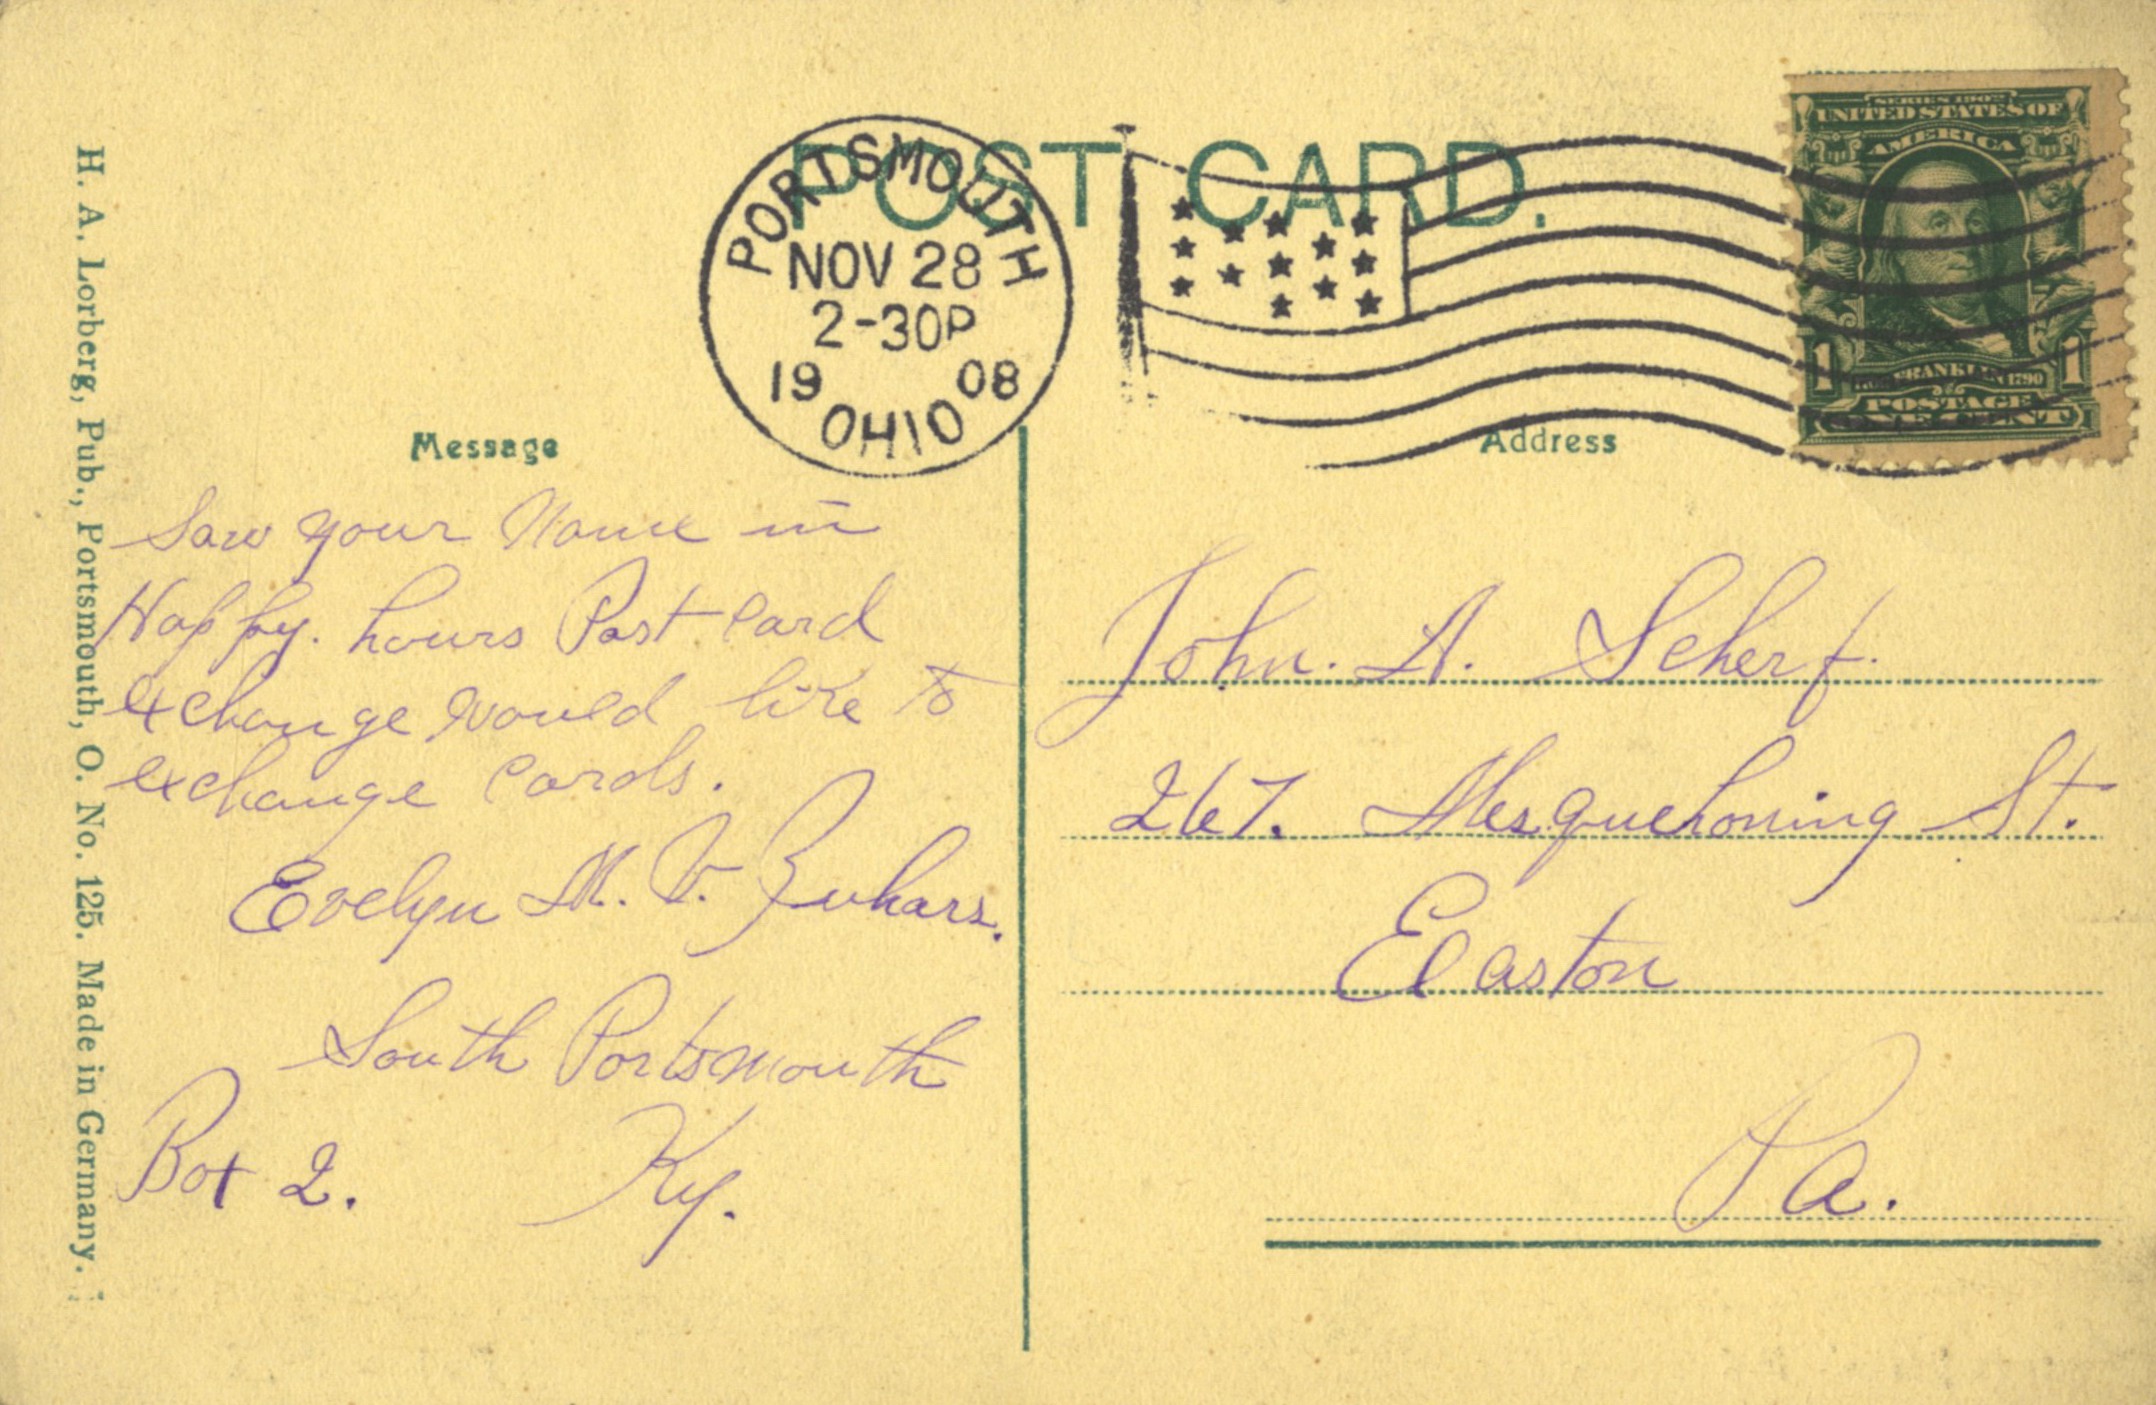 POST CARD.
PORTSMOUTH
NOV 28
2-30P
19 08
OHIO
SERIES 1902
UNITED STATES OF
AMERICA
1 FRANKLIN 1790 1
POSTAGE
ONE CENT
Message
Saw your Name in
Happy. hours Post Card
exchange would like to
exchange Cards.
Evelyn M. V. Zuhars.
South Portsmouth
Box 2. Ky.
Address
John. A. Scherf.
267. Mesquehoning St.
Easton
Pa.
H. A. Lorberg, Pub., Portsmouth, O. No. 125. Made in Germany.